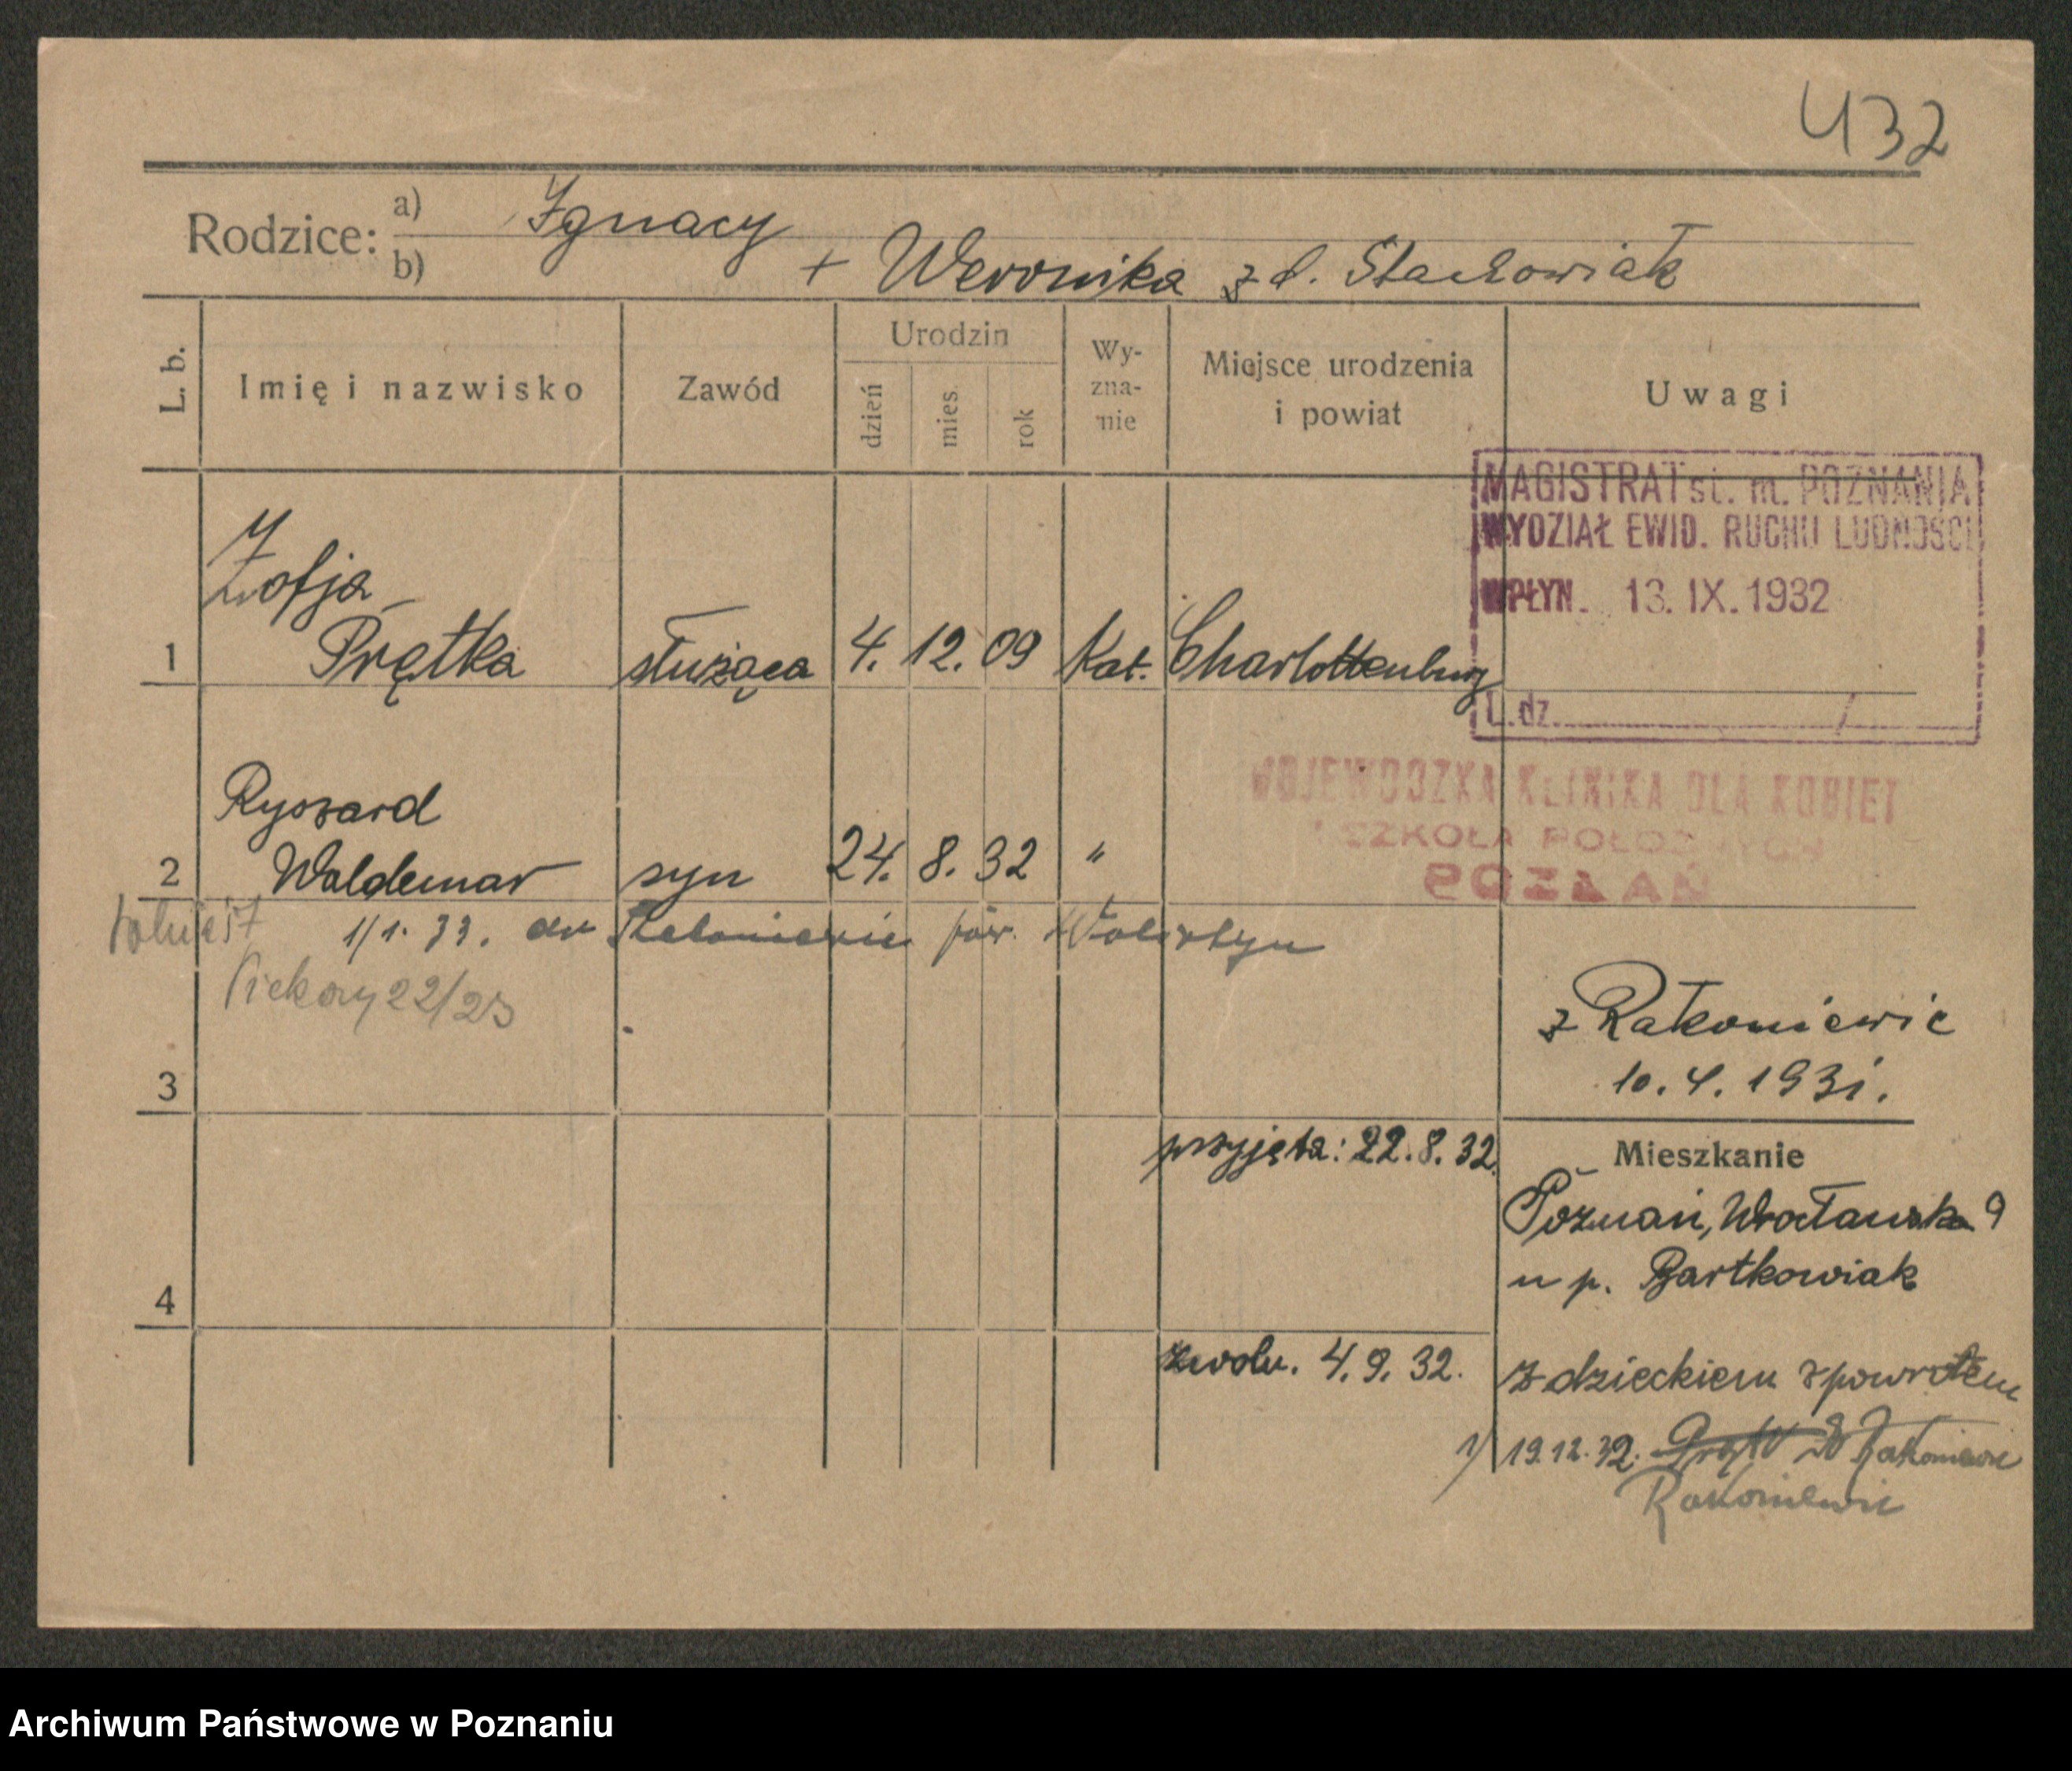 432
Rodzice: a) Ignacy
b) + Weronika z d. Stachowiak
L. b. Imię i nazwisko Zawód Urodzin dzień mies. rok Wy-zna-nie Miejsce urodzenia i powiat Uwagi
MAGISTRAT st. m. POZNANIA
WYDZIAŁ EWID. RUCHU LUDNOŚCI
WPŁYN. 13. IX. 1932
L. dz. /
Zofja
1 Prętka służąca 4. 12. 09 Kat. Charlottenburg
WOJEWÓDZKA KLINIKA DLA KOBIET
I SZKOŁA POŁOŻNYCH
POZNAŃ
Ryszard
2 Waldemar syn 24. 8. 32 "
1/1. 33. do pow. Wolsztyn
Piekary 22/23
z Rakoniewic
10. 4. 1931.
3
przyjęta: 22. 8. 32.
Mieszkanie
Poznań, Wrocławska 9
u p. Bartkowiak
4
zwoln. 4. 9. 32.
z dzieckiem zpowrotem
19. 12. 32. Rakoniewic
Rakoniewic
Archiwum Państwowe w Poznaniu